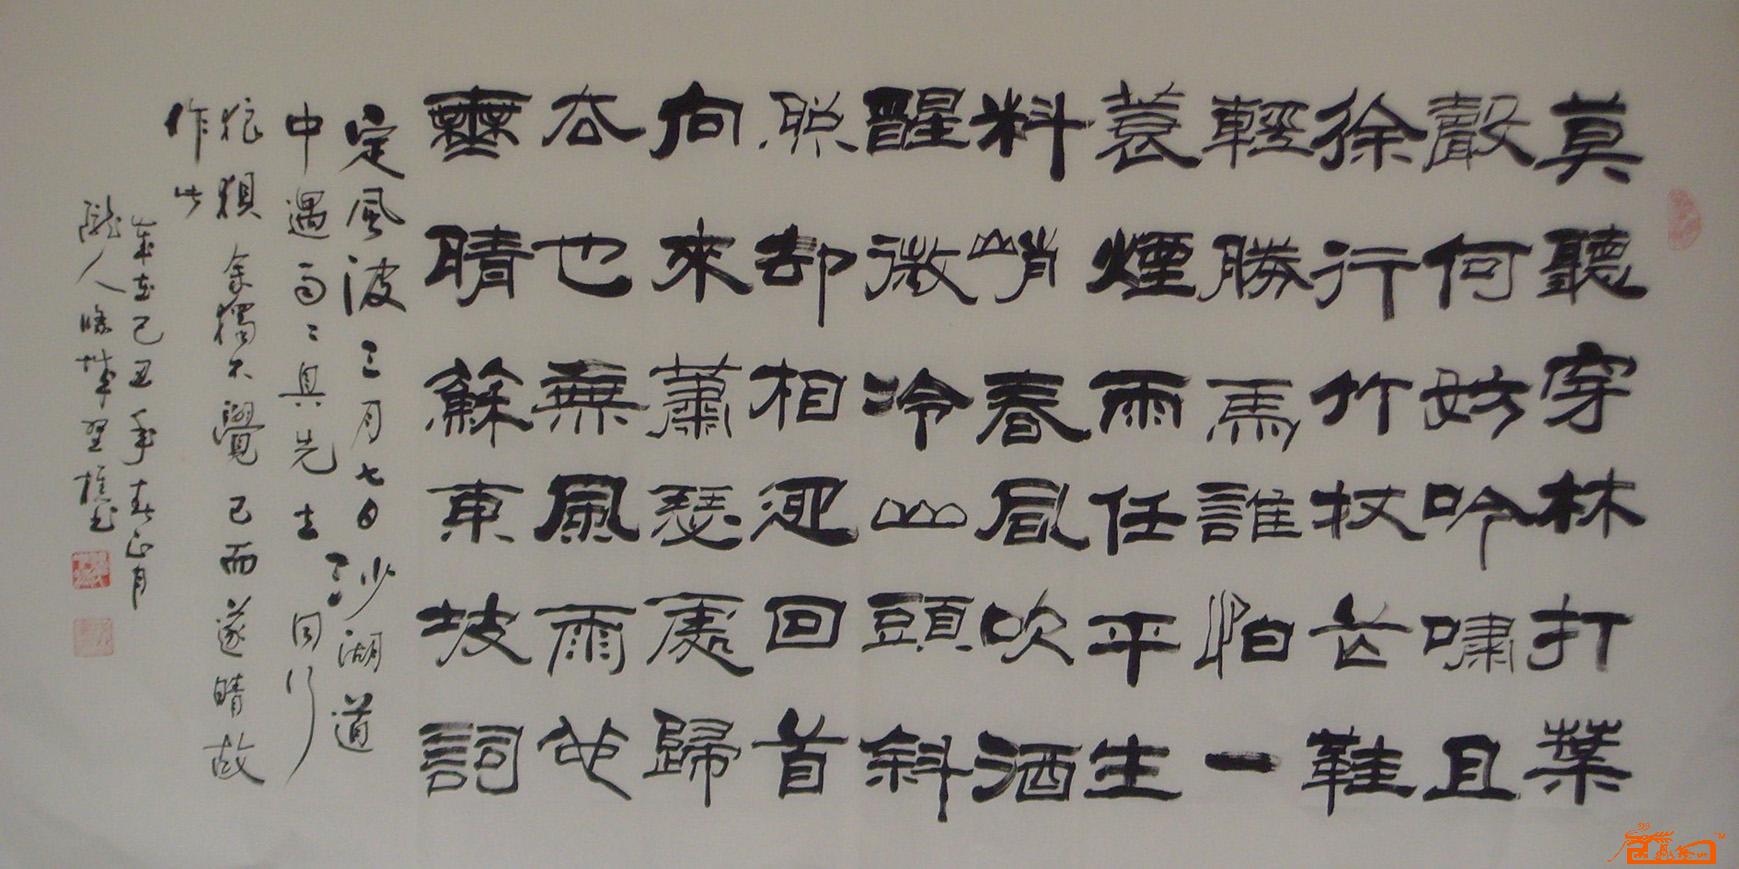 莫聽穿林打葉
聲何妨吟嘯且
徐行竹杖芒鞋
輕勝馬誰怕一
蓑煙雨任平生
料峭春風吹酒
醒微冷山頭斜
照却相迎回首
向來蕭瑟處歸
去也無風雨也
無晴蘇東坡詞
定風波三月七日沙湖道
中遇雨〻具先去同行
狼狽余獨不覺已而遂晴故
作此
歲在己丑年春正月
隴人